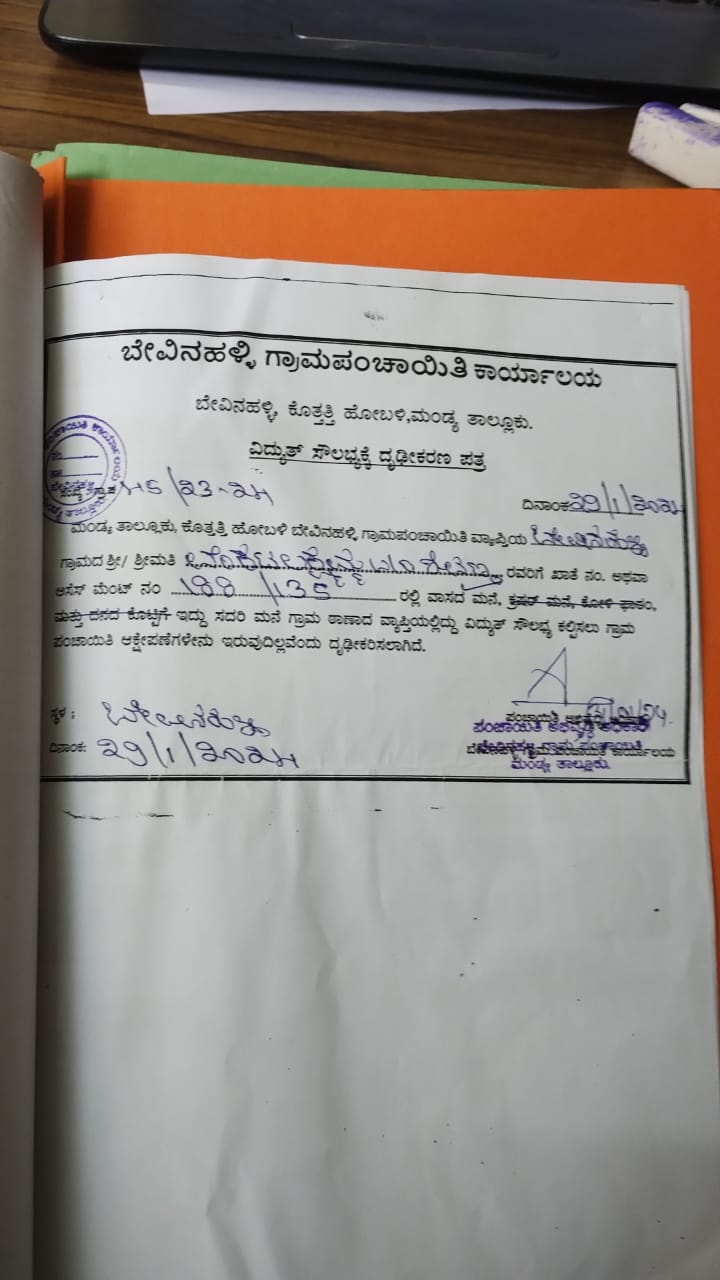 ಬೇವಿನಹಳ್ಳಿ ಗ್ರಾಮಪಂಚಾಯಿತಿ ಕಾರ್ಯಾಲಯ
ಬೇವಿನಹಳ್ಳಿ, ಕೊತ್ತತ್ತಿ ಹೋಬಳಿ,ಮಂಡ್ಯ ತಾಲ್ಲೂಕು.
ವಿದ್ಯುತ್ ಸೌಲಭ್ಯಕ್ಕೆ ದೃಢೀಕರಣ ಪತ್ರ
/23-24
ದಿನಾಂಕ 29/1/2024
ಮಂಡ್ಯ ತಾಲ್ಲೂಕು, ಕೊತ್ತತ್ತಿ ಹೋಬಳಿ ಬೇವಿನಹಳ್ಳಿ ಗ್ರಾಮಪಂಚಾಯಿತಿ ವ್ಯಾಪ್ತಿಯ ಬೇವಿನಹಳ್ಳಿ
ಗ್ರಾಮದ ಶ್ರೀ/ ಶ್ರೀಮತಿ ರವರಿಗೆ ಖಾತೆ ನಂ. ಅಥವಾ
ಅಸೆಸ್ ಮೆಂಟ್ ನಂ 188/135 ರಲ್ಲಿ ವಾಸದ ಮನೆ, ಕ್ರಷರ್ ಮನೆ, ಕೋಳಿ ಫಾರಂ,
ಮತ್ತು ದನದ ಕೊಟ್ಟಿಗೆ ಇದ್ದು ಸದರಿ ಮನೆ ಗ್ರಾಮ ಠಾಣಾದ ವ್ಯಾಪ್ತಿಯಲ್ಲಿದ್ದು ವಿದ್ಯುತ್ ಸೌಲಭ್ಯ ಕಲ್ಪಿಸಲು ಗ್ರಾಮ
ಪಂಚಾಯಿತಿ ಆಕ್ಷೇಪಣೆಗಳೇನು ಇರುವುದಿಲ್ಲವೆಂದು ದೃಢೀಕರಿಸಲಾಗಿದೆ.
ಸ್ಥಳ : ಬೇವಿನಹಳ್ಳಿ
ಪಂಚಾಯಿತಿ ಅಭಿವೃದ್ಧಿ ಅಧಿಕಾರಿ
ದಿನಾಂಕ: 29/1/2024
ಮಂಡ್ಯ ತಾಲ್ಲೂಕು.